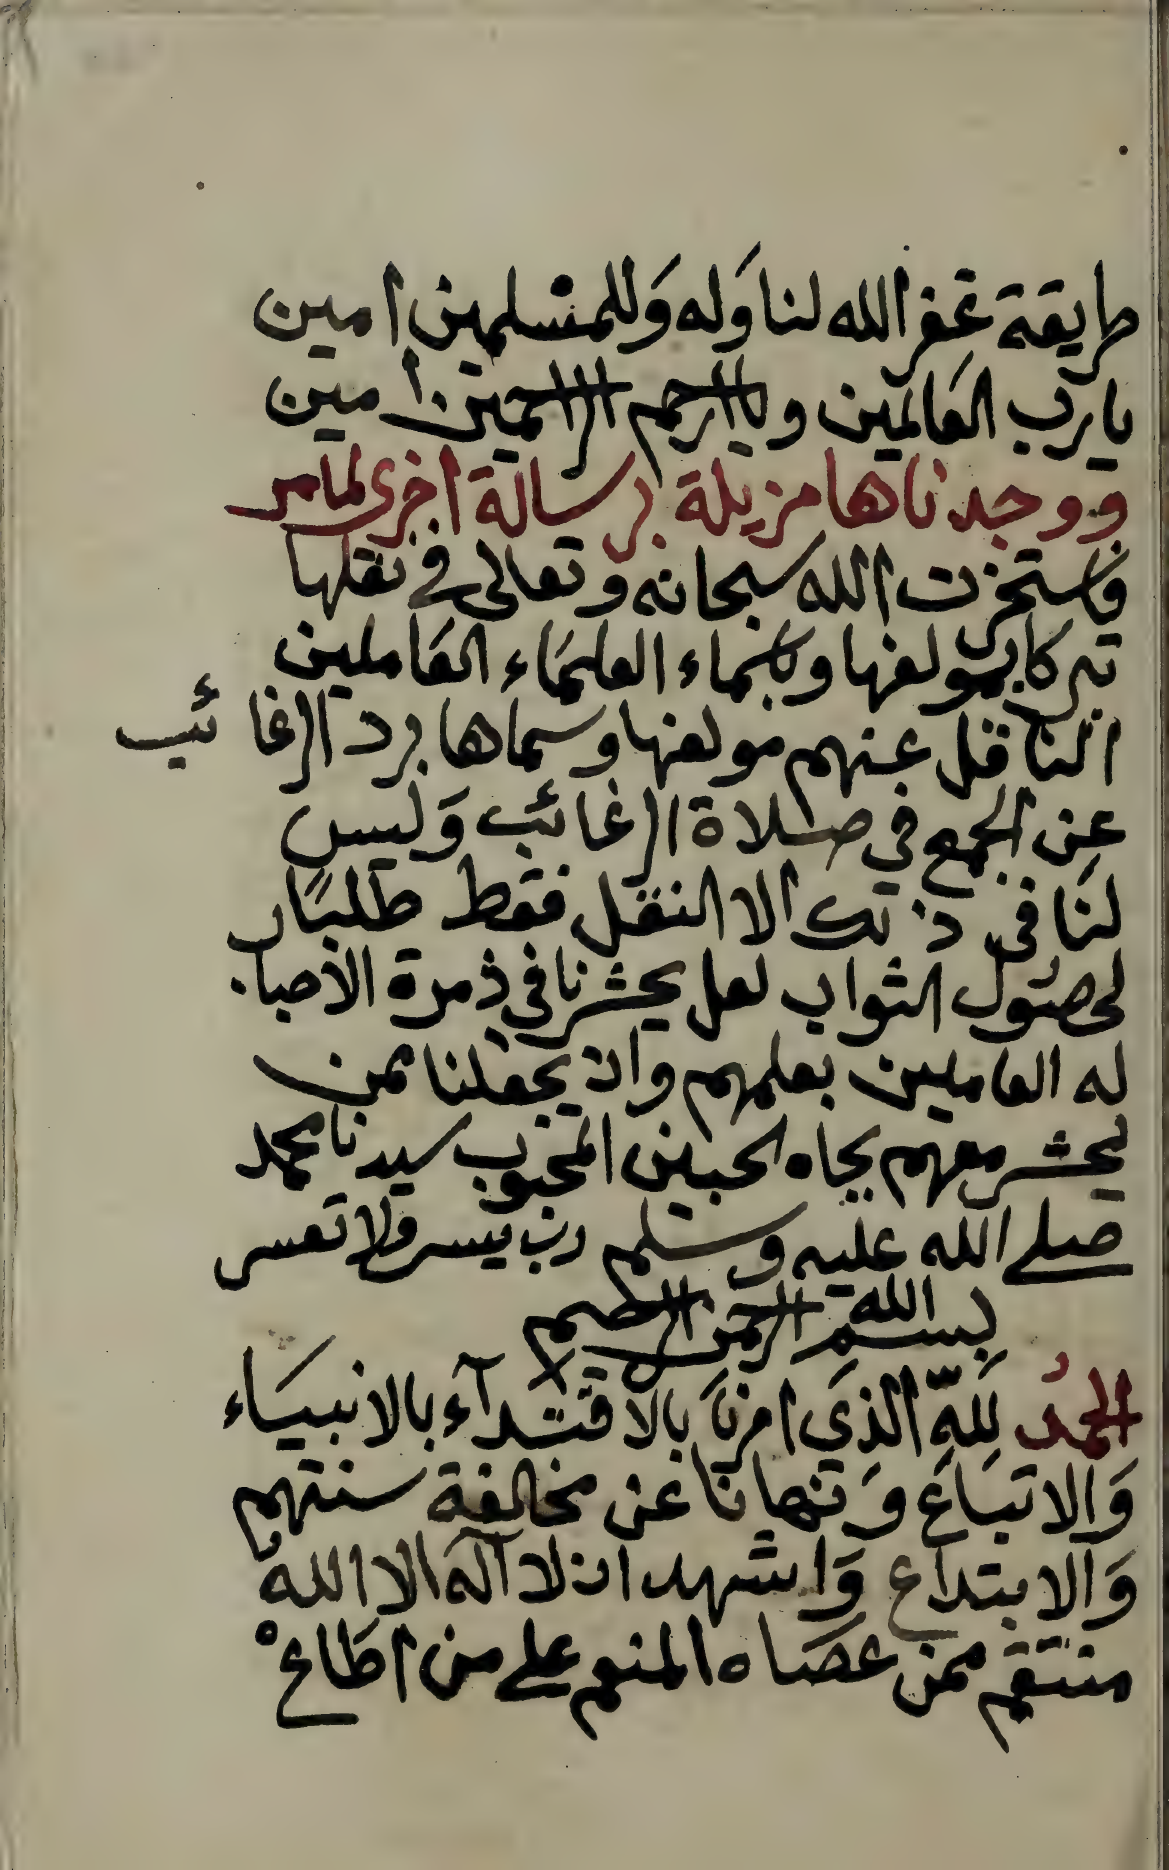 طريقة غفر الله لنا وله وللمسلمين امين
يا رب العالمين ويا ارحم الراحمين امين
ووجدناها مزيلة برسالة اخرى
فاستخرت الله سبحانه وتعالى في نقلها
تبركا بمولفها وباسماء العلماء العاملين
الناقل عنهم مولفها وسماها برد الرغائب
عن الجمع في صلاة الرغائب وليس
لنا في ذلك الا النقل فقط طلبا
لحصول الثواب لعل يحشرنا في ذمرة الاحبا
له العاملين بعلمهم وان يجعلنا ممن
يحشر معهم بجاه الحبيب المحبوب سيدنا محمد
صلى الله عليه وسلم رب يسر ولا تعسر
بسم الله الرحمن الرحيم
الحمدُ لِلّه الذي امرنَا بالاقتدآء بالانبيَاء
وَالاتبَاع وَنهانا عن مخالفة سنتهم
وَالابتداع وَاشهد ان لا آله الا الله
منتقم ممن عصَاه المنعم على من اطَاعه